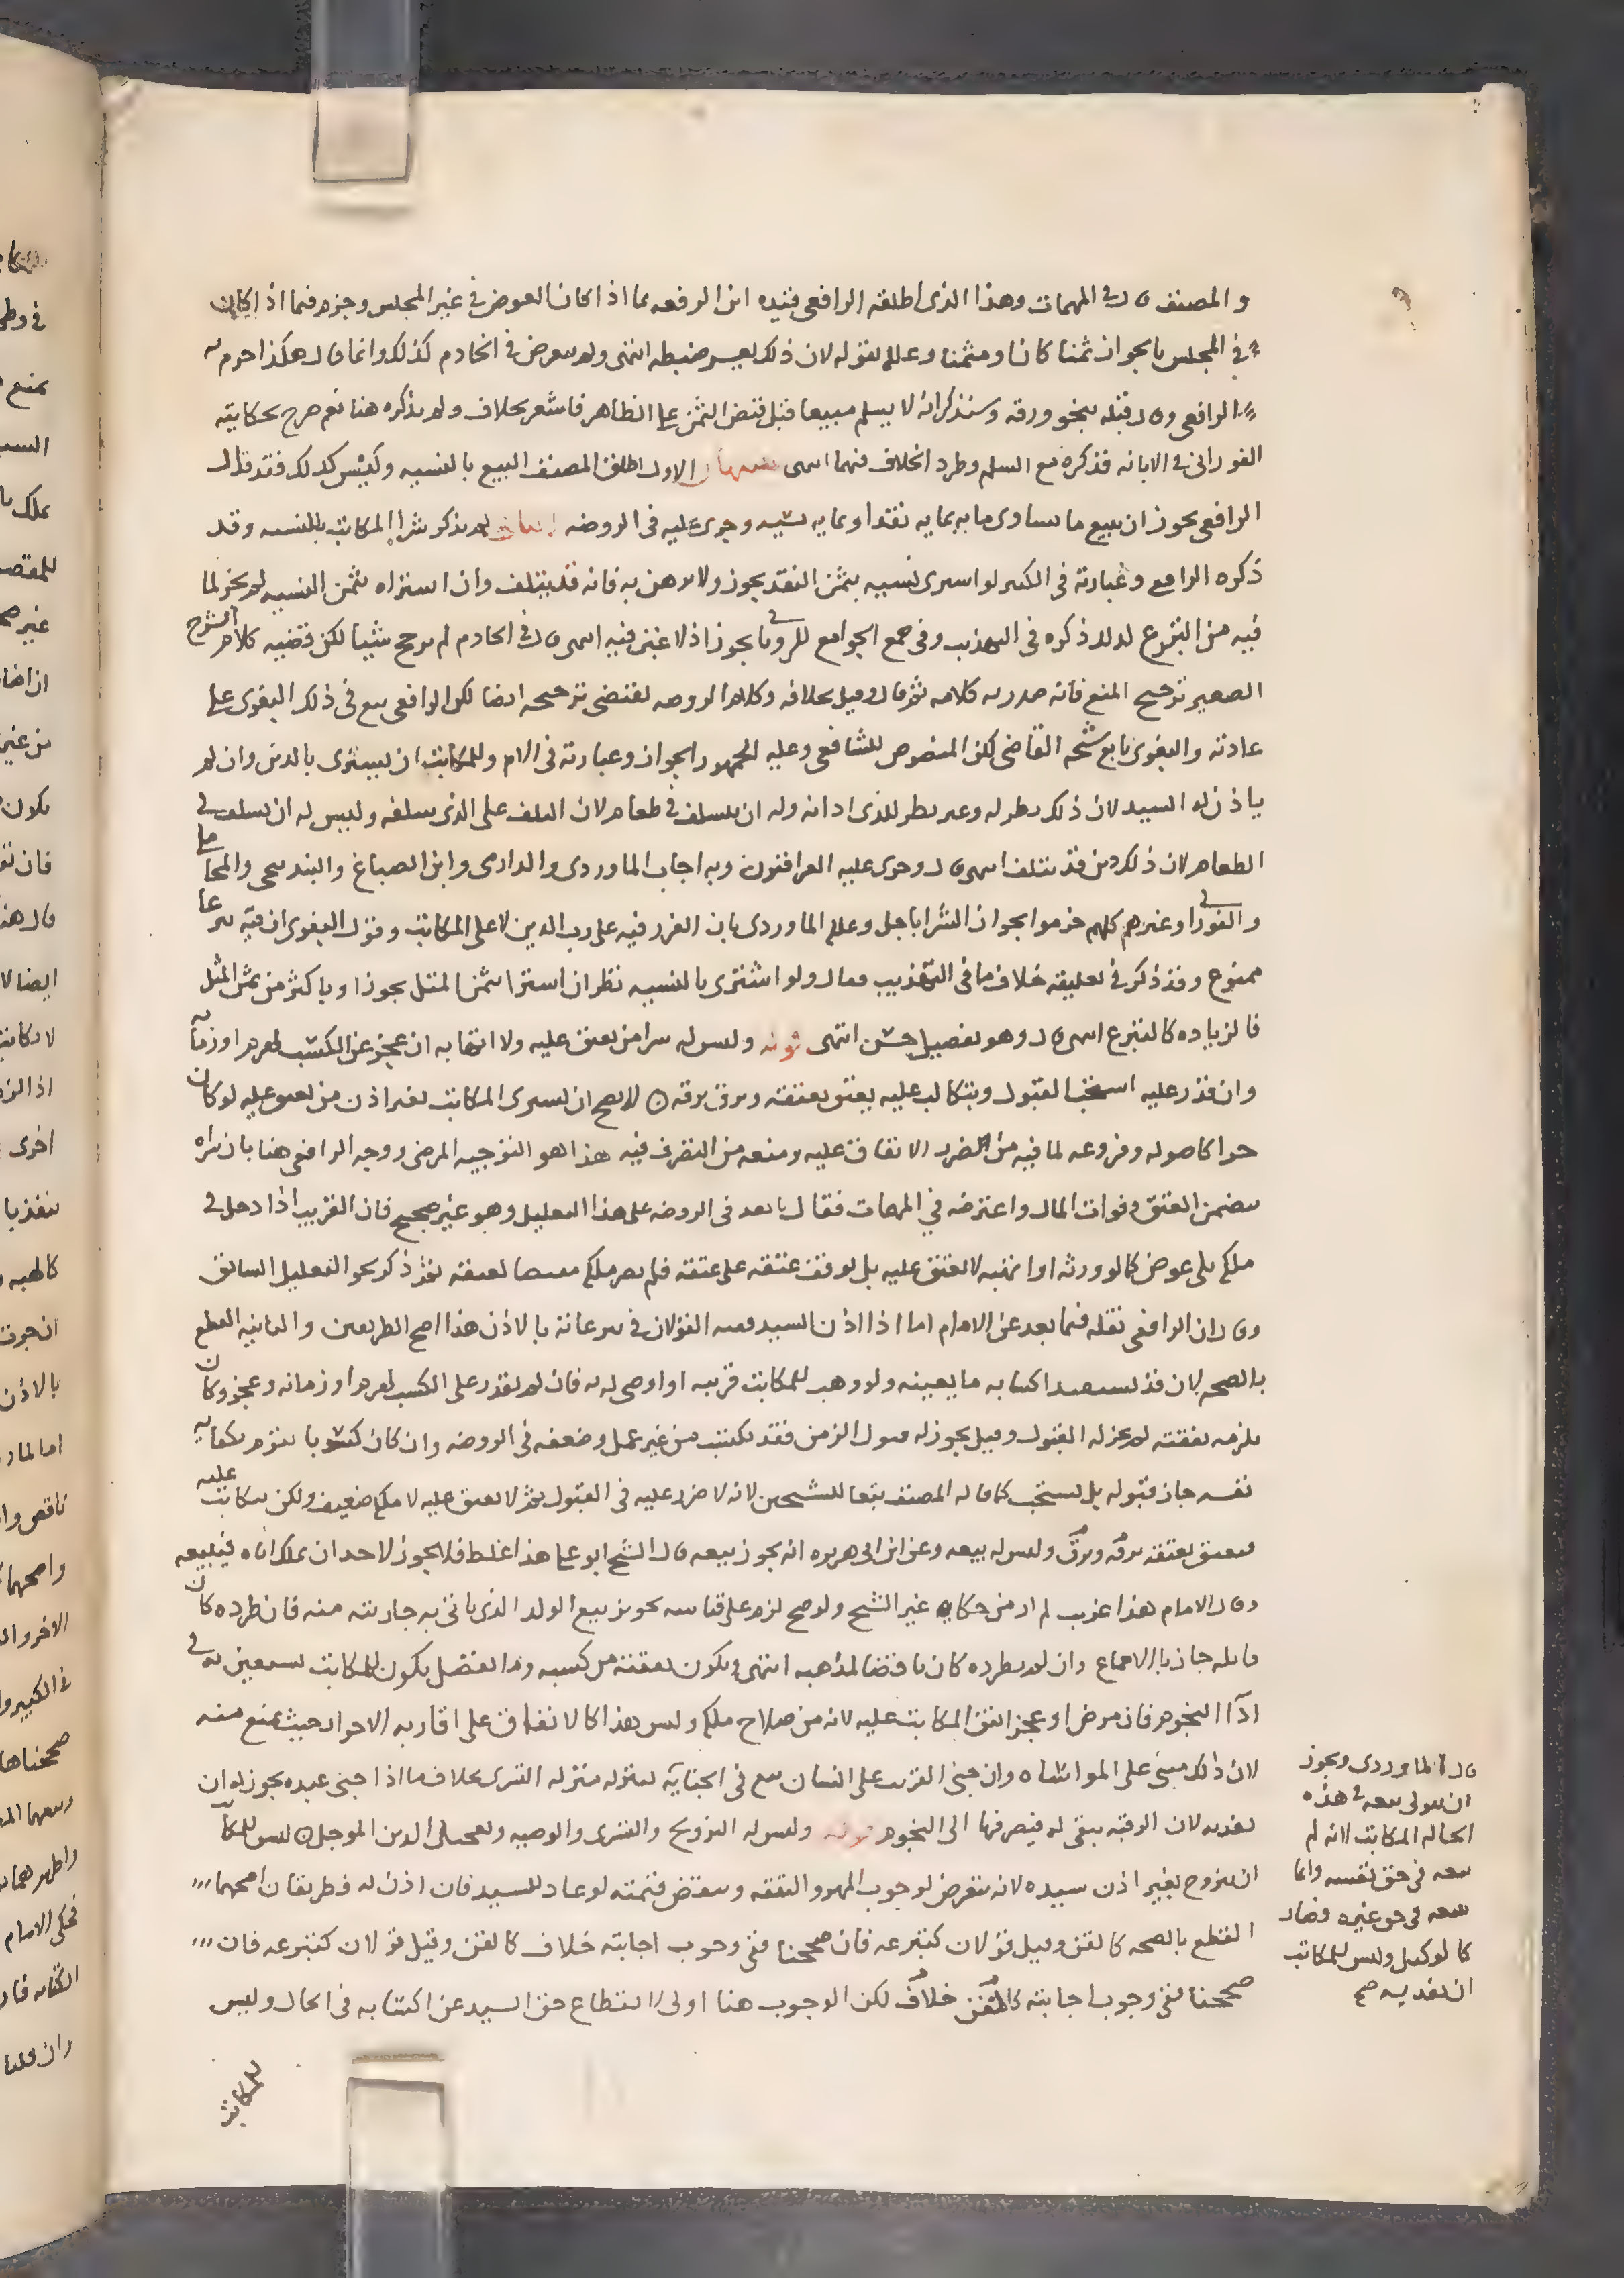 والمصنف قال في المهمات وهذا الذي اطلقه الرافعي قيده ابن الرفعه بما اذا كان العوض في غير المجلس وجزم فيما اذا كان
في المجلس بالجواز ثمنا كان او مثمنا وعلله بقوله لان ذلك يعسر ضبطه انتهى ولم يتعرض في الخادم كذلك وانما قال هكذا جزم به
الرافعي وقال قبله بنحو ورقه وسنذكر انه لا يسلم مبيعا قبل قبض الثمن على الظاهر فاشعر بخلاف ولم يذكره هنا نعم صرح بحكايته
الفوراني في الابانه فذكره مع السلم وطرد الخلاف فيهما انتهى تنبيهان الاول اطلق المصنف البيع بالنسيه وليس كذلك فقد قال
الرافعي يجوز ان يبيع ما يساوي مايه بمايه نقدا ومايه نسيه وجرى عليه في الروضه الثاني لم يذكر شرا المكاتب بالنسيه وقد
ذكره الرافعي وعبارته في الكبير لو اشترى نسيه بثمن النقد يجوز ولا يرهن به فانه قد يتلف وان اشتراه بثمن النسيه لم يجز لما
فيه من التبرع كذلك ذكره في التهذيب وفي جمع الجوامع للروياني يجوز اذ لا غبن فيه انتهى قال في الخادم لم يرجح شيئا لكن قضيه كلام الشرح
الصغير ترجيح المنع فانه صدر به كلامه ثم قال وقيل بخلافه وكلام الروضه يقتضي ترجيحه ايضا لكن الرافعي تبع في ذلك البغوي على
عادته والبغوي تابع شيخه القاضي لكن المنصوص للشافعي وعليه الجمهور الجواز وعبارته في الام وللمكاتب ان يشتري بالدين وان لم
ياذن له السيد لان ذلك نظر له وغير نظر للذي ادانه وله ان يتسلف في طعام لان التلف على الذي سلفه وليس له ان يسلف في
الطعام لان ذلك دين قد يتلف انتهى قال وجرى عليه العراقيون وبه اجاب الماوردي والدارمي وابن الصباغ والبندنيجي والمحاملي
والفوراني وغيرهم كلهم جزموا بجواز الشرا باجل وعلله الماوردي بان الغرر فيه على رب الدين لا على المكاتب وقول البغوي ان فيه تبرعا
ممنوع وقد ذكر في تعليقه خلاف ما في التهذيب فقال ولو اشترى بالنسيه نظر ان اشترا بثمن المثل يجوز او باكثر من ثمن المثل
فالزياده كالتبرع انتهى قال وهو تفصيل حسن انتهى قوله وليس له شرا من يعتق عليه ولا اتهابه ان عجز عن الكسب لهرم او زمانه
وان قدر عليه استحب القبول ويتكاتب عليه يعتق بعتقه ويرق برقه لا يصح ان يشتري المكاتب بغير اذن من يعتق عليه لو كان
حرا كاصوله وفروعه لما فيه من الضرر الانفاق عليه ومنعه من التصرف فيه هذا هو التوجيه المرضي ووجه الرافعي هنا بان شراه
يتضمن العتق وفوات المال واعترضه في المهمات فقال تابعه في الروضه على هذا التعليل وهو غير صحيح فان القريب اذا دخل في
ملكه بلا عوض كما لو ورثه او اتهبه لا يعتق عليه بل يوقف عتقه على عتقه فلم يصر ملكه مقتضيا لعتقه ثم ذكر نحو التعليل السابق
وقال ان الرافعي نقله فيما بعد عن الامام اما اذا اذن السيد ففيه القولان في تبرعاته بالاذن هذا اصح الطريقين والثانيه القطع
بالصحه لان قد يستفيد اكسابه ما يعينه ولو وهب للمكاتب قريبه او اوصي له به فان لم يقدر على الكسب لهرم او زمانه وعجز وكان
يلزمه نفقته لم يجز له القبول وقيل يجوز له قبول الزمن فقد يكتسب من غير عمل وضعفه في الروضه وان كان كسوبا يقوم بكفايه
نفسه جاز قبوله بل يستحب كما قاله المصنف تبعا للشيخين لانه لا ضرر عليه في القبول ثم لا يعتق عليه لان ملكه ضعيف ولكن يتكاتب عليه
فيعتق بعتقه ويرق برقه وليس له بيعه وعن ابن ابي هريره انه يجوز بيعه قال الشيخ ابو علي هذا غلط فلا يجوز لاحد ان يملك اباه فيبيعه
وقال الامام هذا غريب لم ار من حكاه غير الشيخ ولو صح لزم على قياسه تجويز بيع الولد الذي ياتي به جاريته منه فان طرده كان
قابله جاز بالاجماع وان لم يطرده كان ناقضا لمذهبه انتهى ويكون نفقته من كسبه وما يفضل يكون للمكاتب يستعين به في
ادا النجوم فان مرض او عجز انفق المكاتب عليه لانه من صلاح ملكه وليس هذا كالانفاق على اقاربه الاحرار حيث يمنع منه
لان ذلك مبني على المواساه وان جنى القريب على انسان بيع في الجنايه لمنزله منزله الشرى بخلاف ما اذا جنى عبده يجوز له ان
يفديه لان الرقبه تبقى له فيصرفها الى النجوم قوله وليس له التزويج والتسري والوصيه وتعجيل الدين المؤجل ليس للمكاتب
ان يتزوج بغير اذن سيده لانه يتعرض لوجوب المهر والنفقه وينقص قيمته لو عاد للسيد فان اذن له فطريقان اصحهما
القطع بالصحه كالقن وقيل قولان كتبرعه فان صححنا ففي وجوب اجابته خلاف كالقن وقيل قولان كتبرعه فان
صححنا ففي وجوب اجابته كالقن خلاف لكن الوجوب هنا اولى لانقطاع حق السيد عن اكتسابه في الحال وليس
للمكاتب
قال الماوردي ويجوز
ان يتولى بيعه في هذه
الحاله المكاتب لانه لم
يبعه في حق نفسه وانما
بيعه في حق غيره فصار
كالوكيل وليس للمكاتب
ان يفديه صح